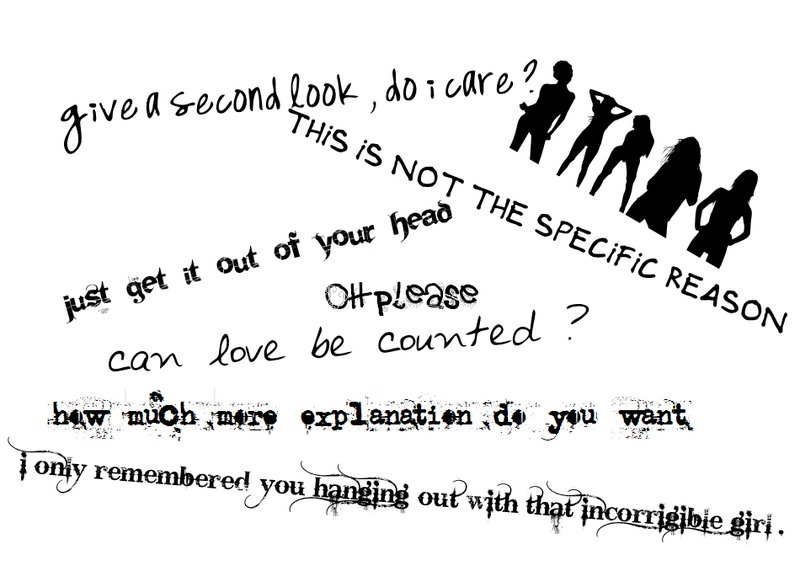 give a second look, do i care?
THiS iS NOT THE SPECiFiC REASON
just get it out of your head
OH please
can love be counted ?
how much more explanation do you want
i only remembered you hanging out with that incorrigible girl.